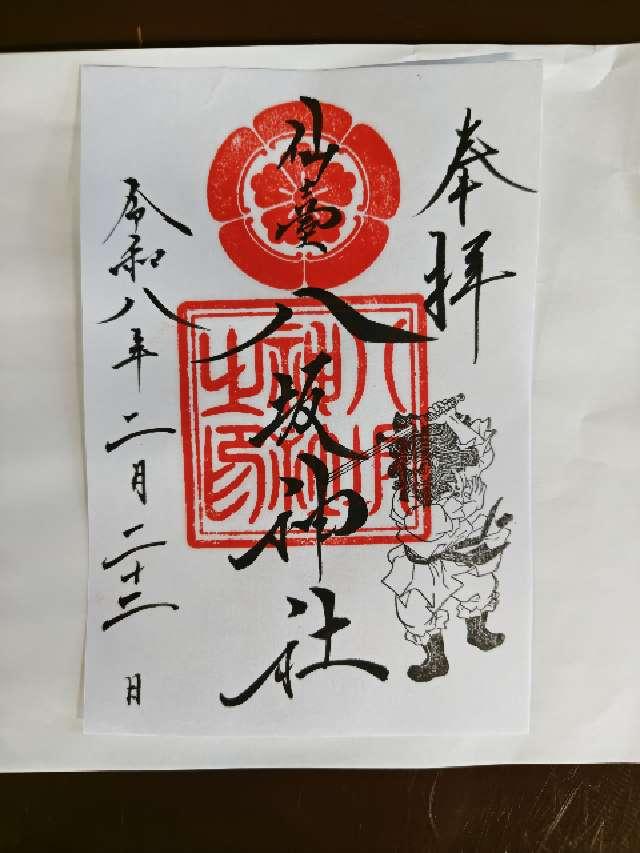 奉拝
仙臺
八坂神社
八坂神社之印
令和八年二月二十二日